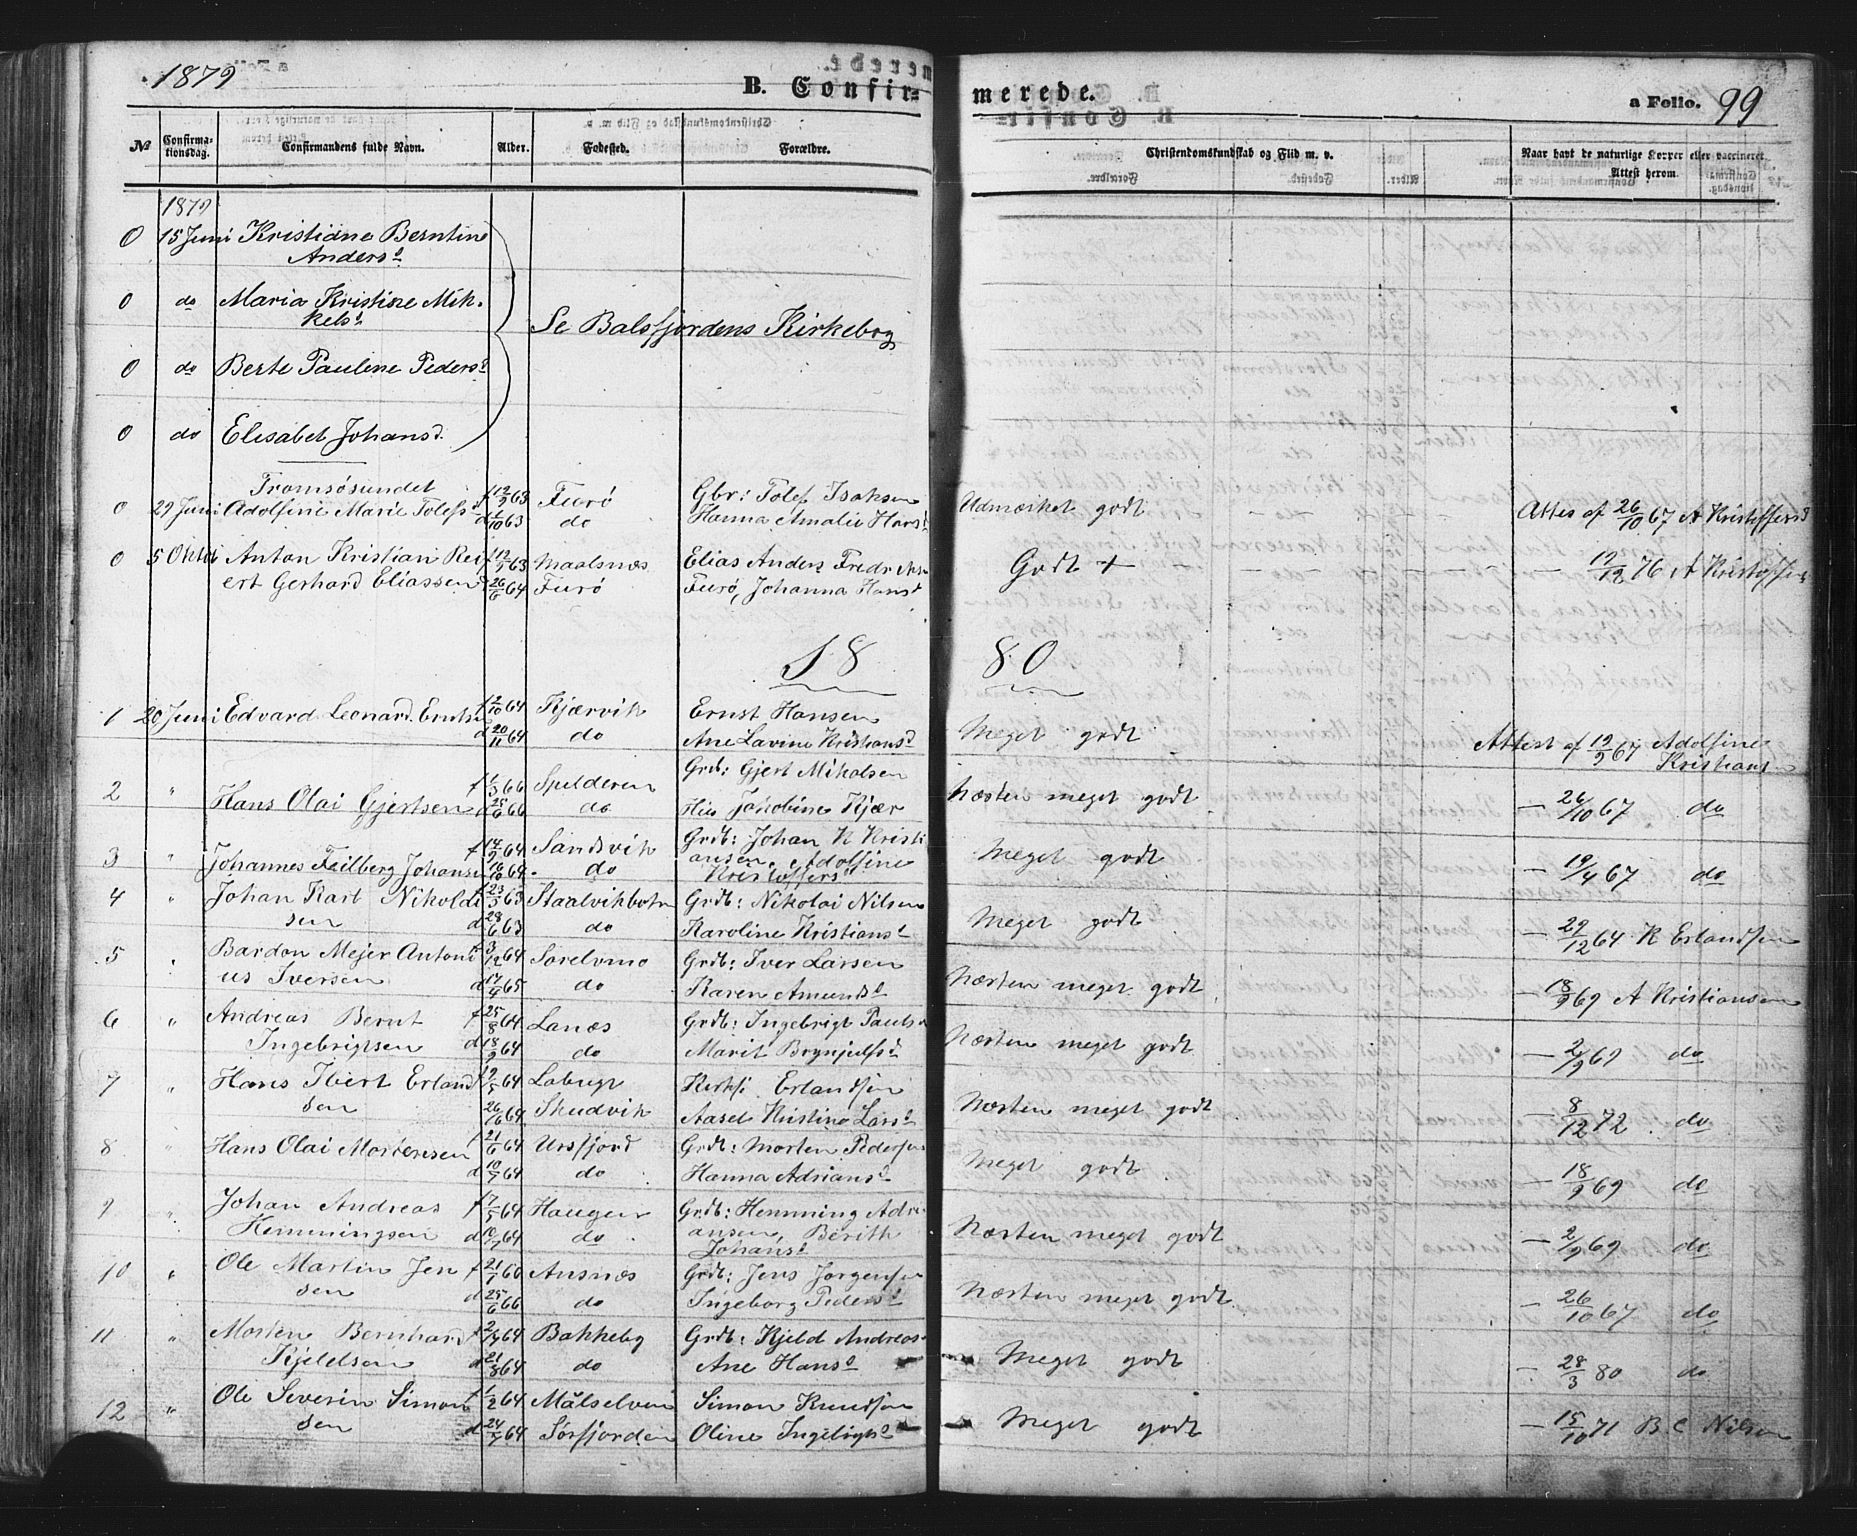 1879
B. Confir=
merede.
a Folio. 99
No
Confirma-
tionsdag.
Confirmandens fulde Navn.
Alder.
Fødested.
Forældre.
Christendomskundskab og Flid m. v.
Naar havt de naturlige Kopper eller vaccineret
Attest herom.
1879
0 15 Juni Kristiane Berntine
Andersd
0 do Maria Kristine Mik-
kelsd
Se Balsfjordens Kirkebog
0 do Berte Pauline Pedersd
0 do Elisabet Johansd.
Tromsøsundet
0 29 Juni Adolfine Marie Tolefsd f 12/9 63 Furø Gbr: Tolef Isaksen Udmærket godt Attes af 26/10 67 A Kristoffersd
d 1/10 63 do Hanna Amalie Hansd
0 5 Oktob Anton Kristian Rei f 12/9 63 Maalsnæs Elias Anders Fredr Godt + — 19/12 76 A Kristoffers
ert Gerhard Eliassen 26/6 64 Furø Furø, Johanna Hansd
18 80
1 20 Juni Edvard Leonard Ernstsen f 2/10 64 Kjærvik Ernst Hansen Meget godt Attest af 19/9 67 Adolfine
d 20/11 64 do Ane Lavine Kristiansd Kristiansen
2 " Hans Olai Gjertsen f 1/3 66 Spilderen Grdb: Gjert Mikalsen Næsten meget godt — 26/10 67 do
d 25/6 66 do Hus Jakobine Kjær
3 " Johannes Feilberg Johanse f 14/9 64 Sandsvik Grdb: Johan K Kristi Meget godt — 19/4 67 do
16/10 64 do ansen, Adolfine
Kristoffersd
4 " Johan Kart Nikolai f 23/5 63 Staalvikbotn Grdb: Nikolai Nilsen Meget godt — 29/12 64 K Erlandsen
sen d 28/6 63 do Karoline Kristiansd
5 " Bardon Mejer Antoni f 3/12 64 Sørelvmo Grdb: Iver Larsen Næsten meget godt — 18/9 69 A Kristiansen
us Iversen d 17/4 65 do Karen Amundsd
6 " Andreas Bernt f 25/8 64 Lanæs Grdb: Ingebrigt Pauls Næsten meget godt — 2/9 69 do
Ingebrigtsen d 18/9 64 do Marit Brynjulfsd
7 " Hans Ibert Erland f 9/5 64 Laberge Erlandsen Næsten meget godt — 8/12 72 do
sen 26/6 64 Skudvik Aasel Kristine Larsd
8 " Hans Olai Mortensen f 21/6 64 Ursfjord Grdb: Morten Pedersen Meget godt — 18/9 69 do
d 10/7 64 do Hanna Adriansd
9 " Johan Andreas f 7/5 64 Haugen Grdb: Hemming Adri Næsten meget godt — 2/9 69 do
Hemmingsen d 10/7 64 do ansen, Berith
Johansd
10 " Ole Martin Jen f 21/1 66 Ansnæs Grdb: Jens Jørgensen Næsten meget godt — 26/10 67 do
sen d 25/6 66 do Ingeborg Pedersd
11 " Morten Bernhard f 2/8 64 Bakkeby Grdb: Kjeld Andreas Meget godt — 28/3 80 do
Kjeldsen d 21/8 64 do Ane Hansd
12 " Ole Severin Simon f 1/2 64 Målselven Simon Knudsen Meget godt — 15/10 71 B. C Nilsen
sen d 24/7 64 Sørfjorden Oline Ingebrigtsd